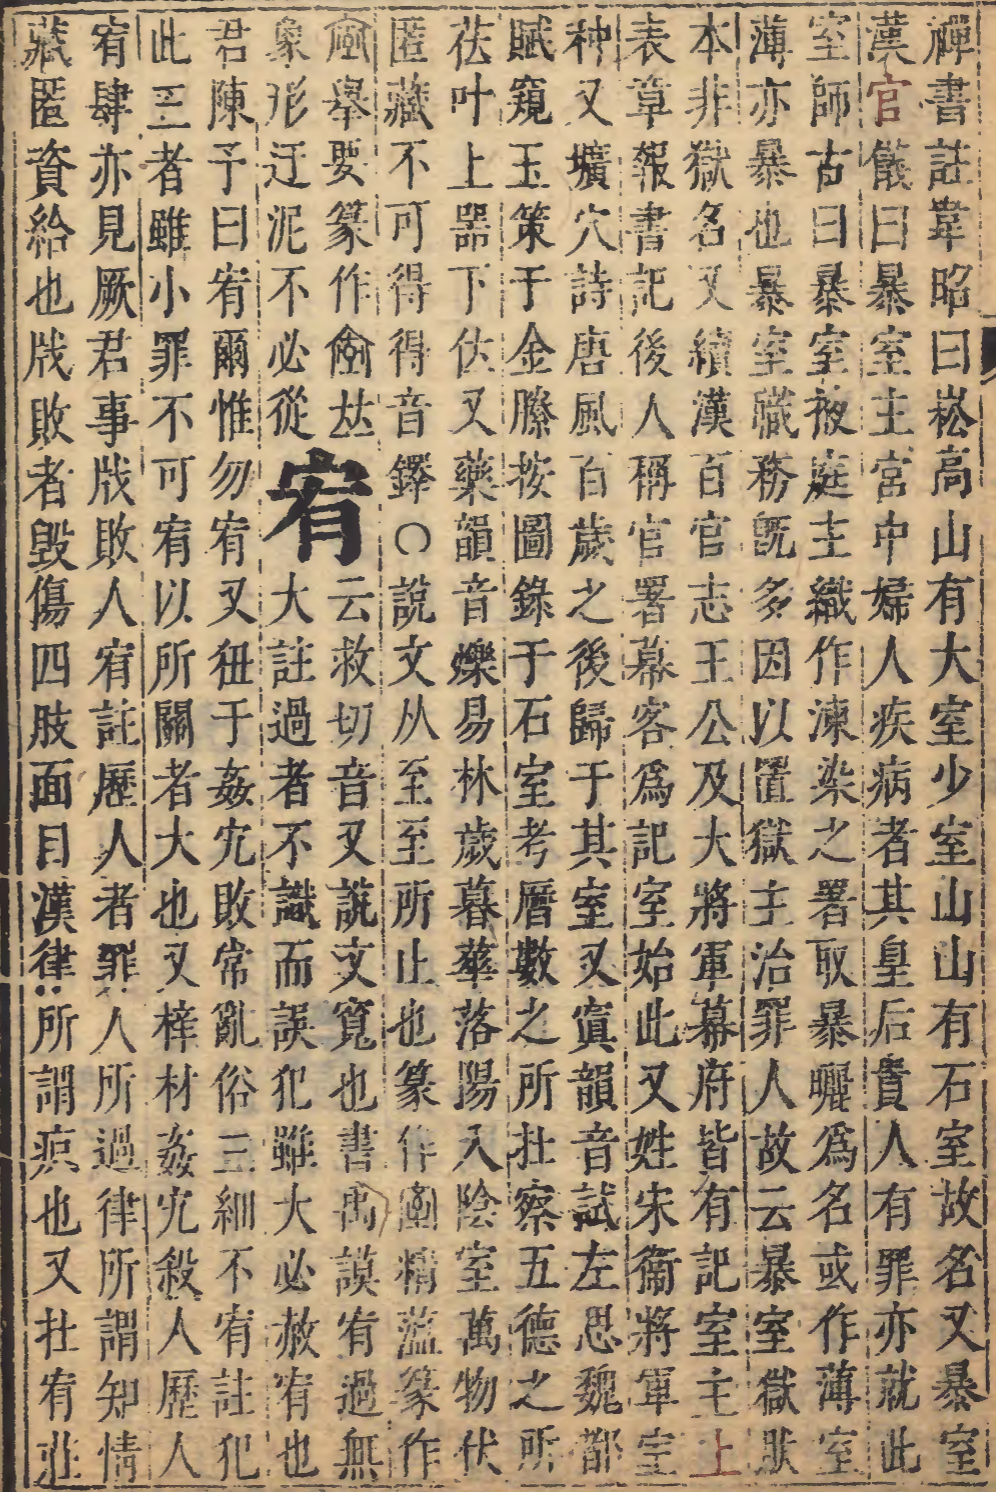 禪書註韋昭曰崧高山有大室少室山山有石室故名又暴室
漢官儀曰暴室主宮中婦人疾病者其皇后貴人有罪亦就此
室師古曰暴室掖庭主織作湅染之署取暴曬爲名或作薄室
薄亦暴也暴室職務旣多因以置獄主治罪人故云暴室獄狀
本非獄名又續漢百官志王公及大將軍幕府皆有記室主上
表章報書記後人稱官署幕客爲記室始此又姓宋衞將軍室
种又壙穴詩唐風百歲之後歸于其室又寘韻音試左思魏都
賦窺玉策于金縢按圖錄于石室考曆數之所在察五德之所
莅叶上噐下伏又藥韻音爍易林歲暮華落陽入陰室萬物伏
匿藏不可得得音鐸○說文从至至所止也篆作精薀篆作
舉要篆作𠀤宥云救切音又說文寬也書禹謨宥過無
象形迂泥不必從大註過者不識而誤犯雖大必赦宥也
君陳予曰宥爾惟勿宥又狃于姦宄敗常亂俗三細不宥註犯
此三者雖小罪不可宥以所關者大也又梓材姦宄殺人歷人
宥肆亦見厥君事戕敗人宥註歷人者罪人所過律所謂知情
藏匿資給也戕敗者毀傷四肢面目漢律所謂疻也又在宥莊